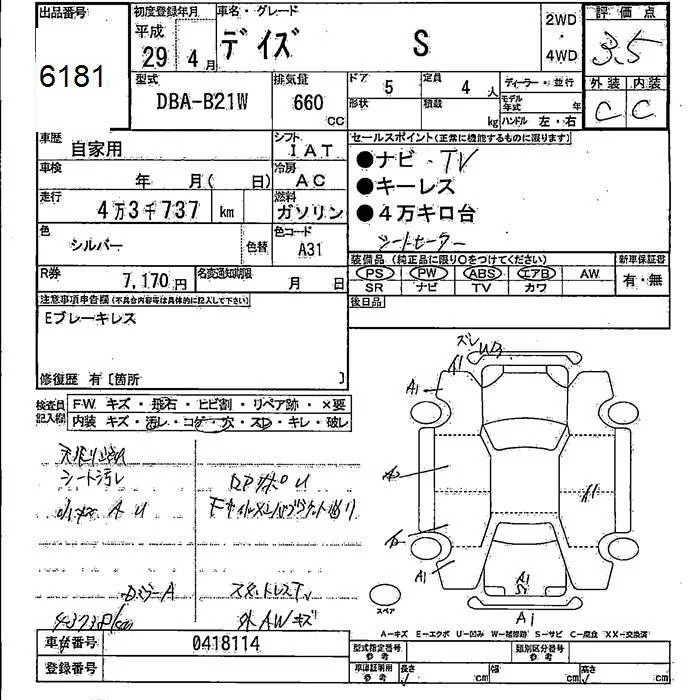 出品番号
6181
初度登録年月
平成 29年 4月
車名・グレード
デイズ S
2WD・4WD
評価点
3.5
型式
DBA-B21W
排気量
660 CC
ドア 5
定員 4 人
ディーラー・並行
形状
積載 kg
モデル年式 年
ハンドル 左・右
外装 内装
C C
車歴
自家用
シフト
IAT
車検
年 月( 日)
冷房
AC
走行
4万3千737 km
燃料
ガソリン
色
シルバー
色替
色コード
A31
R券
7,170円
名変通知期限
月 日
セールスポイント(正常に機能するものに限ります)
●ナビ・TV
●キーレス
●4万キロ台
シートヒーター
装備品(純正品に限り○をつけてください)
新車保証書
PS PW ABS エアB AW
有・無
SR ナビ TV カワ
後日品
注意事項申告欄(不具合内容等は具体的に記入して下さい)
Eブレーキレス
修復歴 有〔箇所 〕
検査員記入欄
FW キズ・飛石・ヒビ割・リペア跡・×要
内装 キズ・汚レ・コゲ・穴・スレ・キレ・破レ
シート汚レ
DミラーA
スペアタイヤレス
外AWキズ
ズレ
A1
A1
A1
A1
A1
スペア
A1
A-キズ E-エクボ U-凹み W-補修跡 S-サビ C-腐食 XX-交換済
車台番号
0418114
登録番号
型式指定番号 参考
類別区分番号 参考
車庫証明用 参考
長さ cm
幅 cm
高さ cm